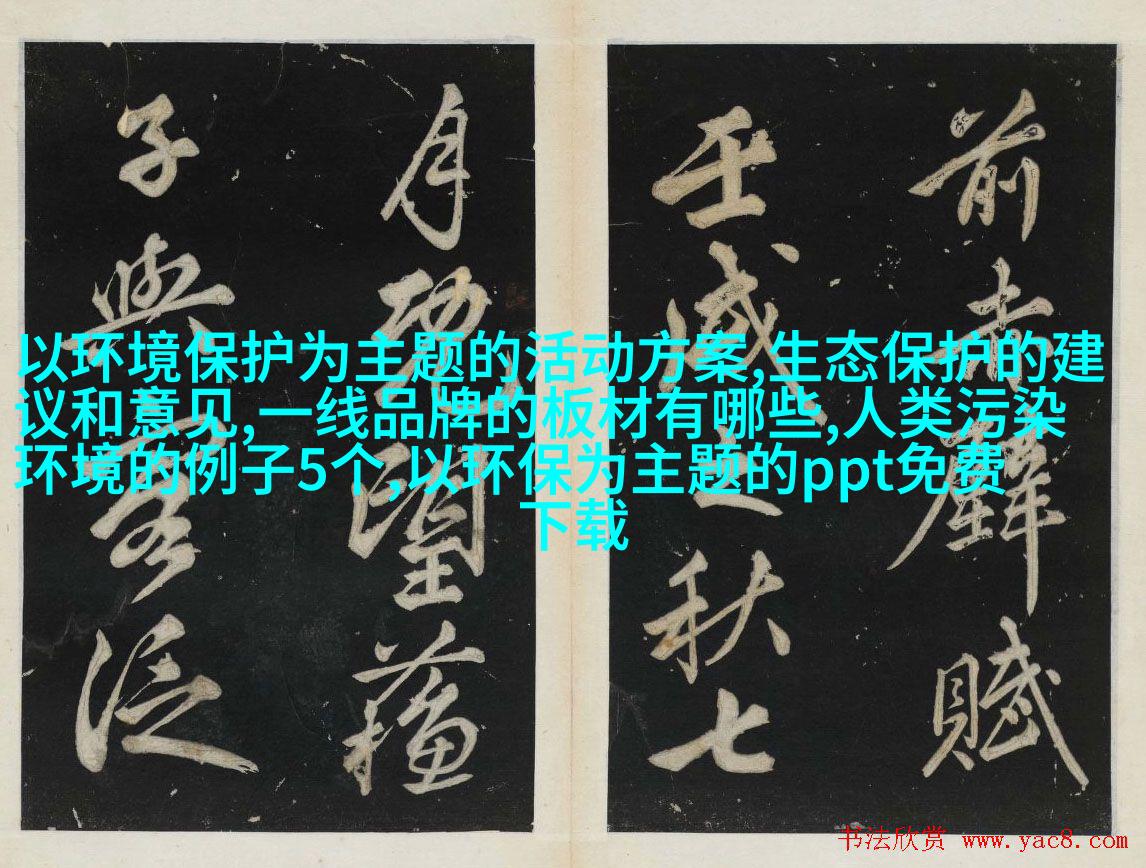 前赤壁賦
壬戌之秋七
月既望蘓
子與客泛
以环境保护为主题的活动方案,生态保护的建
议和意见,一线品牌的板材有哪些,人类污染
环境的例子5个,以环保为主题的ppt免费
下载
书法欣赏 www.yac8.com